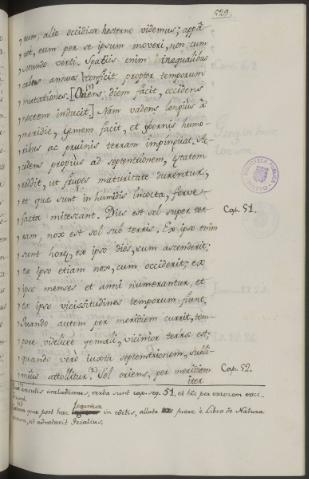 529.
rum, alio occidisse hesterno videmus; appa-
ret, eum per se ipsum moveri, non cum
mundo verti. Spatiis enim inaequalibus
cursus annuos conficit propter temporum
mutationes. [Oriens diem facit, occidens
noctem inducit.] Nam vadens longius à
meridie, hyemem facit, ut hybernis humo-
ribus ac pruinis terram impinguat. Ac-
cedens propius ad septentrionem, aestatem
reddit, ut fruges maturitate durentur,
et quae sunt in humidis incocta, ferve-
facta mitescant. Dies est sol super ter-
Cap. 51.
ram, nox est sol sub terris. Ex ipso enim
sunt horae, ex ipso dies, cum ascenderit;
ex ipso etiam nox, cum occiderit; ex
ipso menses et anni numerantur, et
ex ipso vicissitudines temporum fiunt.
Quando autem per meridiem currit, tem-
pore videlicet hyemali, vicinior terrae est;
quando verò iuxtà septemtrionem, subli-
mius attollitur. Sol oriens, per meridiem
Cap. 52.
iter
verba sunt cap. seq. 51. et hîc per errorem
sequentia
que post haec in editis, allata fuere è Libro de Natura
rerum, ut adnotavit Arevalus.